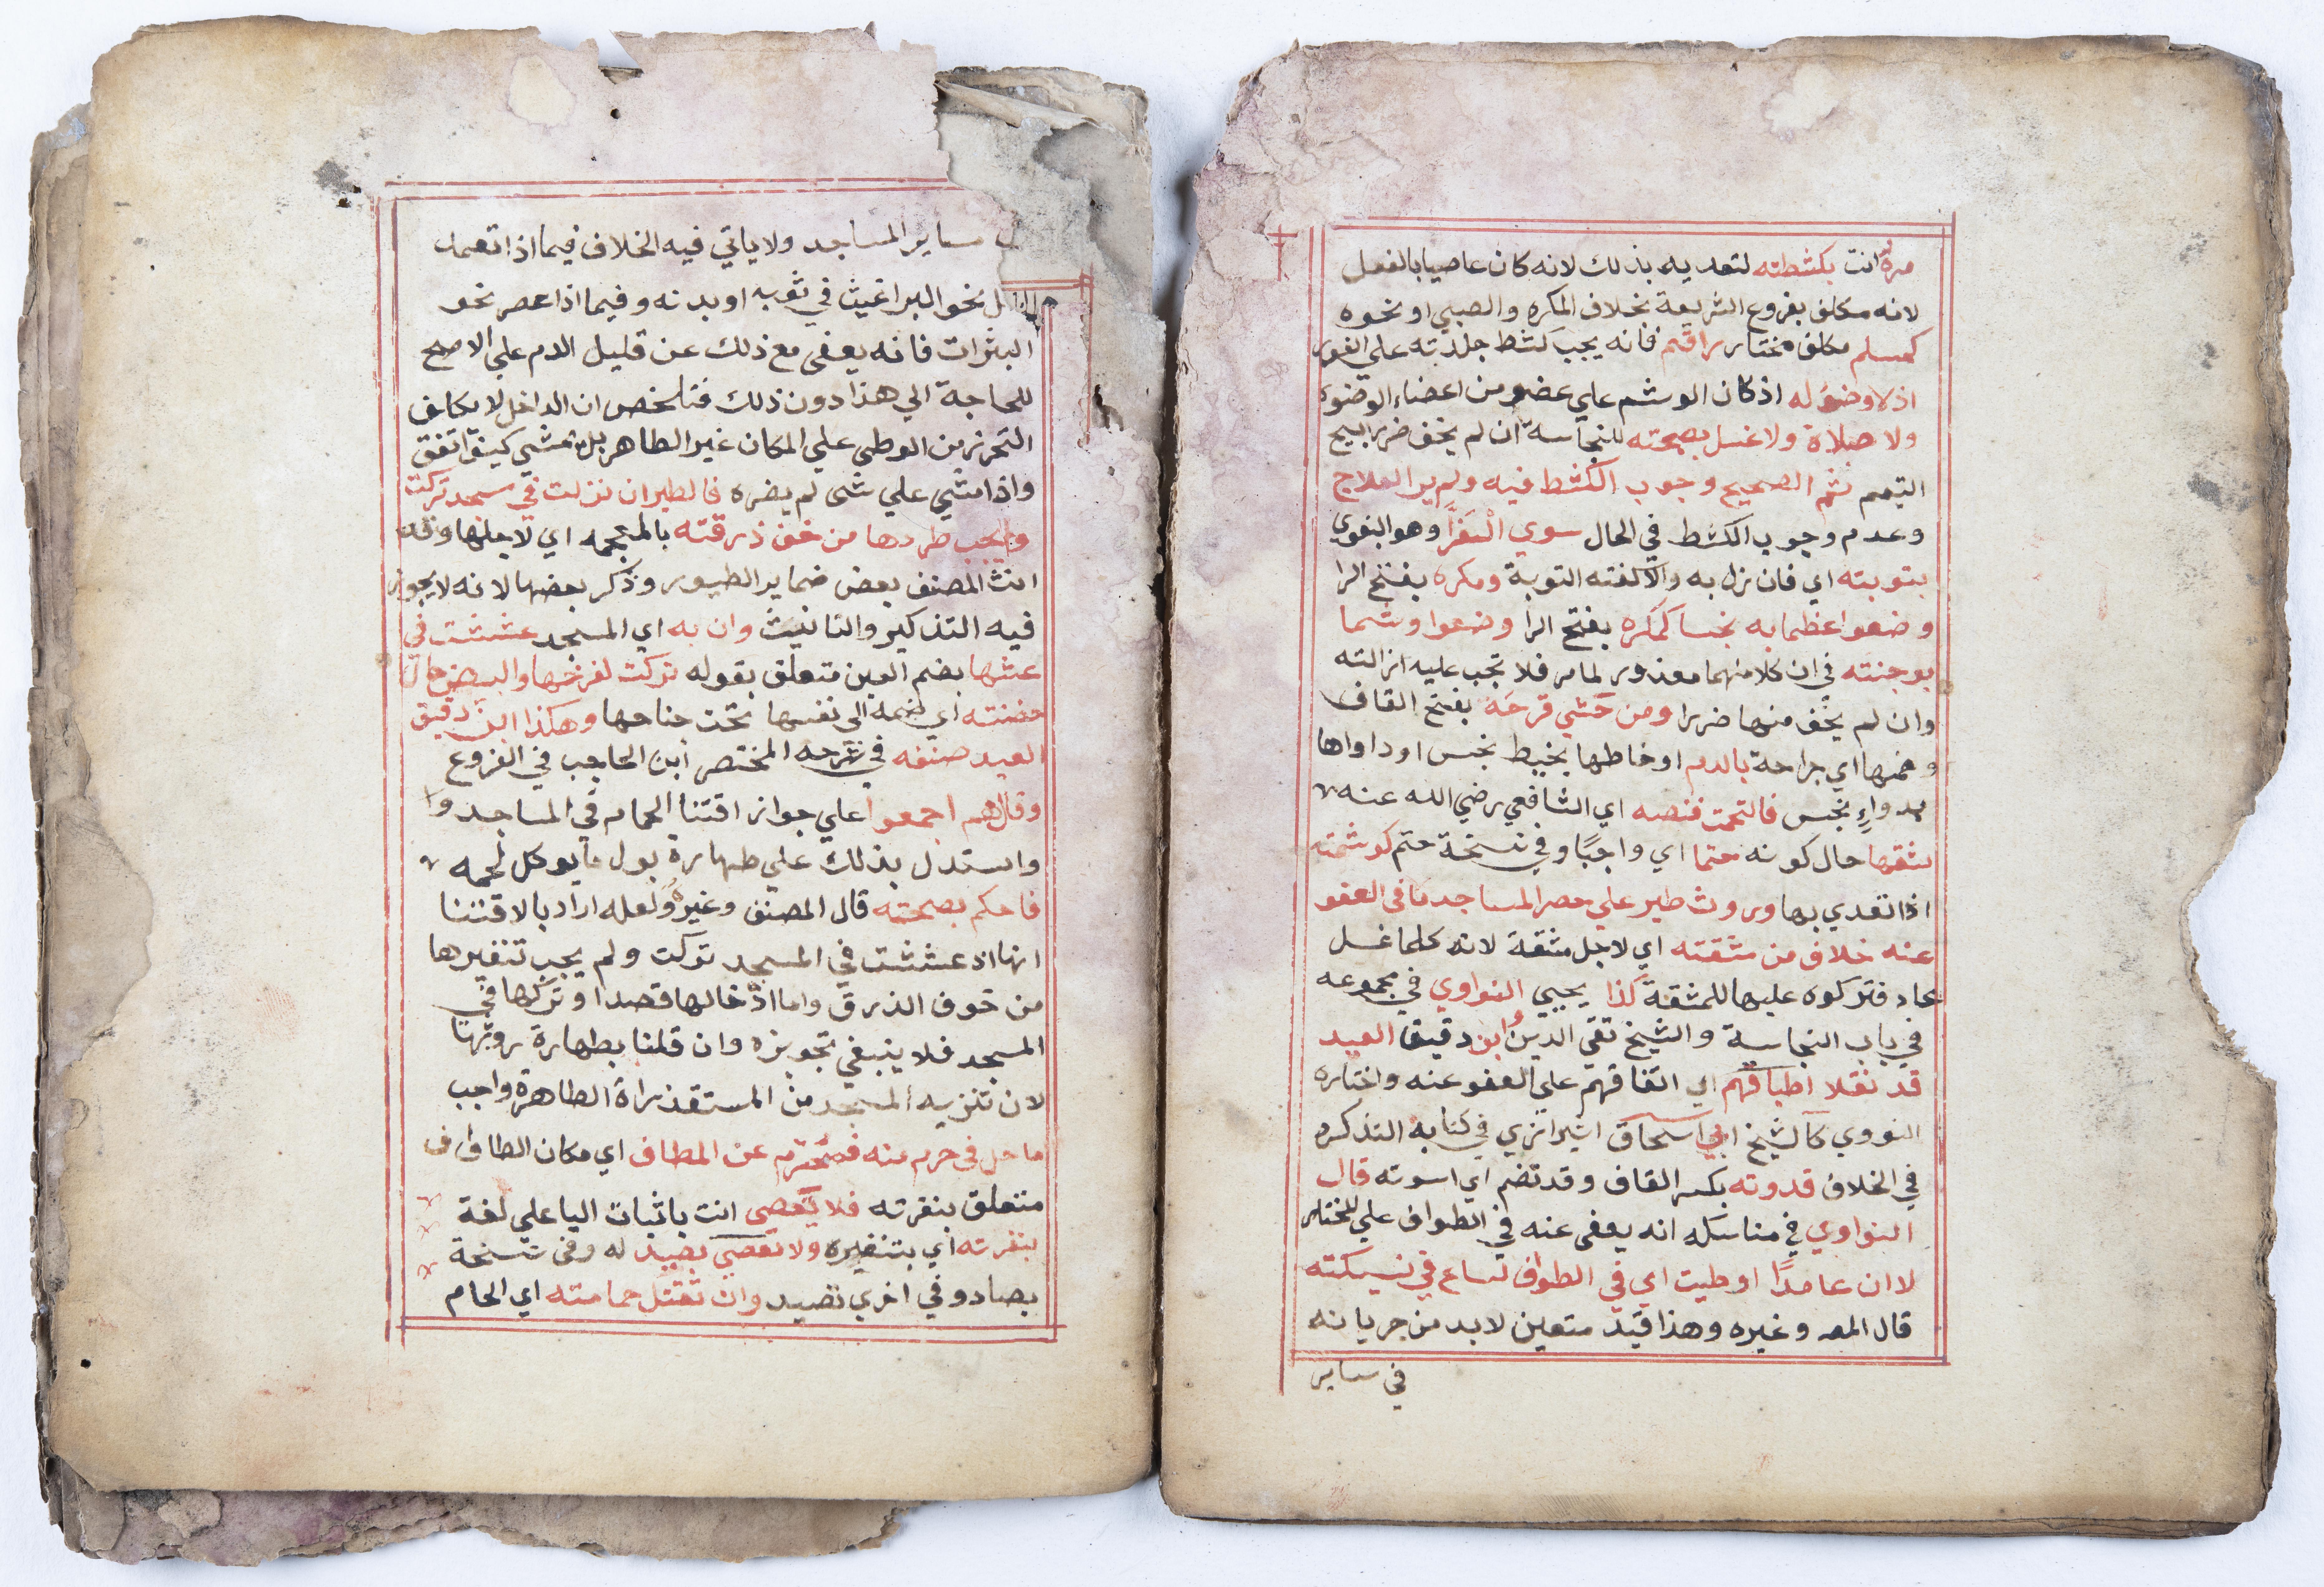 مرة انت بكشطته لتعديه بذلك لانه كان عاصيا بالفعل
لانه مكلف بفروع الشريعة بخلاف المكره والصبي او نحوه
كمسلم مكلف مختار راقم فانه يجب كشط جلدته علي الفور
اذ لا وضوء له اذ كان الوشم علي عضو من اعضاء الوضوء
ولا صلاة ولا غسل بصحته للنجاسة ان لم يخف ضررا يبيح
التيمم ثم الصحيح وجوب الكشط فيه ولم ير العلاج
وعدم وجوب الكشط في الحال سوي الفرا وهو البغوي
بتوبته اي فان نزل به والا كفته التوبة ومكره بفتح الرا
وضعوا عظما به نجسا كمكره بفتح الرا وضعوا وشما
بوجنته في ان كلا منهما معذور لما مر فلا تجب عليه ازالته
وان لم يخف منها ضررا ومن حشي قرحه بفتح القاف
وضمها اي جراحة بالدم او خاطها بخيط نجس او داواها
بدواءٍ نجس فالتحمت فنصه اي الشافعي رضي الله عنه
بشقها حال كونه حتما اي واجبًا وفي نسخة حتم كوشمته
اذا تعدي بها وروث طير علي حصر المساجد ما في العفو
عنه خلاف من مشقته اي لاجل مشقة لانه كلما غسل
عاد فتركوه عليها للمشقة كذا يحيي النواوي في مجموعه
في باب النجاسة والشيخ تقي الدين ابن دقيق العيد
قد نقلا اطباقهم اي اتفاقهم علي العفو عنه واختاره
النووي كالشيخ ابي اسحاق الشيرازي في كتابه التذكره
في الخلاف قدوته بكسر القاف وقد تضم اي اسوته قال
النواوي في مناسكه انه يعفي عنه في الطواف علي المختار
لا ان عامدًا اوطيت اي في الطواف لساع في نسيكته
قال المصـ وغيره وهذا قيد متعين لابد من جريانه
في ساير
ساير المساجد ولا ياتي فيه الخلاف فيما اذا تعمد
نحو البراغيث في ثوبه او بدنه وفيما اذا عصر نحو
البثرات فانه يعفي مع ذلك عن قليل الدم علي الاصح
للحاجة الي هذا دون ذلك فتلخص ان الداخل لا يكلف
التحرز من الوطي علي المكان غير الطاهر بل يمشي كيف اتفق
واذا مشي علي شي لم يضره فالطير ان نزلت في مسجد تركت
ولا يجب طردها من خوف ذرقته بالمعجمه اي لاجلها وقد
انث المصنف بعض ضماير الطيور وذكر بعضها لانه لا يجوز
فيه التذكير والتانيث وان به اي المسجد عششت في
عشها بضم العين متعلق بقوله تركت لفرخها والبيض حال
حضنته اي ضمه الي نفسها تحت جناحها وهكذا ابن دقيق
العيد صنفه في شرحه المختصر ابن الحاجب في الفروع
وقال هم اجمعوا علي جواز اقتنا الحمام في المساجد
واستدل بذلك علي طهارة بول ما يوكل لحمه
فاحكم بصحته قال المصنف وغيره ولعله اراد بالاقتنا
انها اذ عششت في المسجد تركت ولم يجب تنفيرها
من خوف الذرق واما ادخالها قصدا وتركها في
المسجد فلا ينبغي تجويزه وان قلنا بطهارة روثها
لان تنزيه المسجد من المستقذراة الطاهرة واجب
ما حل في حرم منه فمحترم عن المطاف اي مكان الطواف
متعلق بنفرته فلا تعصي انت باثبات اليا علي لغة
بنفرته اي بتنفيره ولا تعصي بصيد له وفي نسخة
بصاد وفي اخري تصيد وان تقتل حمامته اي الحام